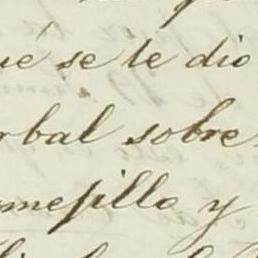 ué se te dio
rbal sobre
mesillo y